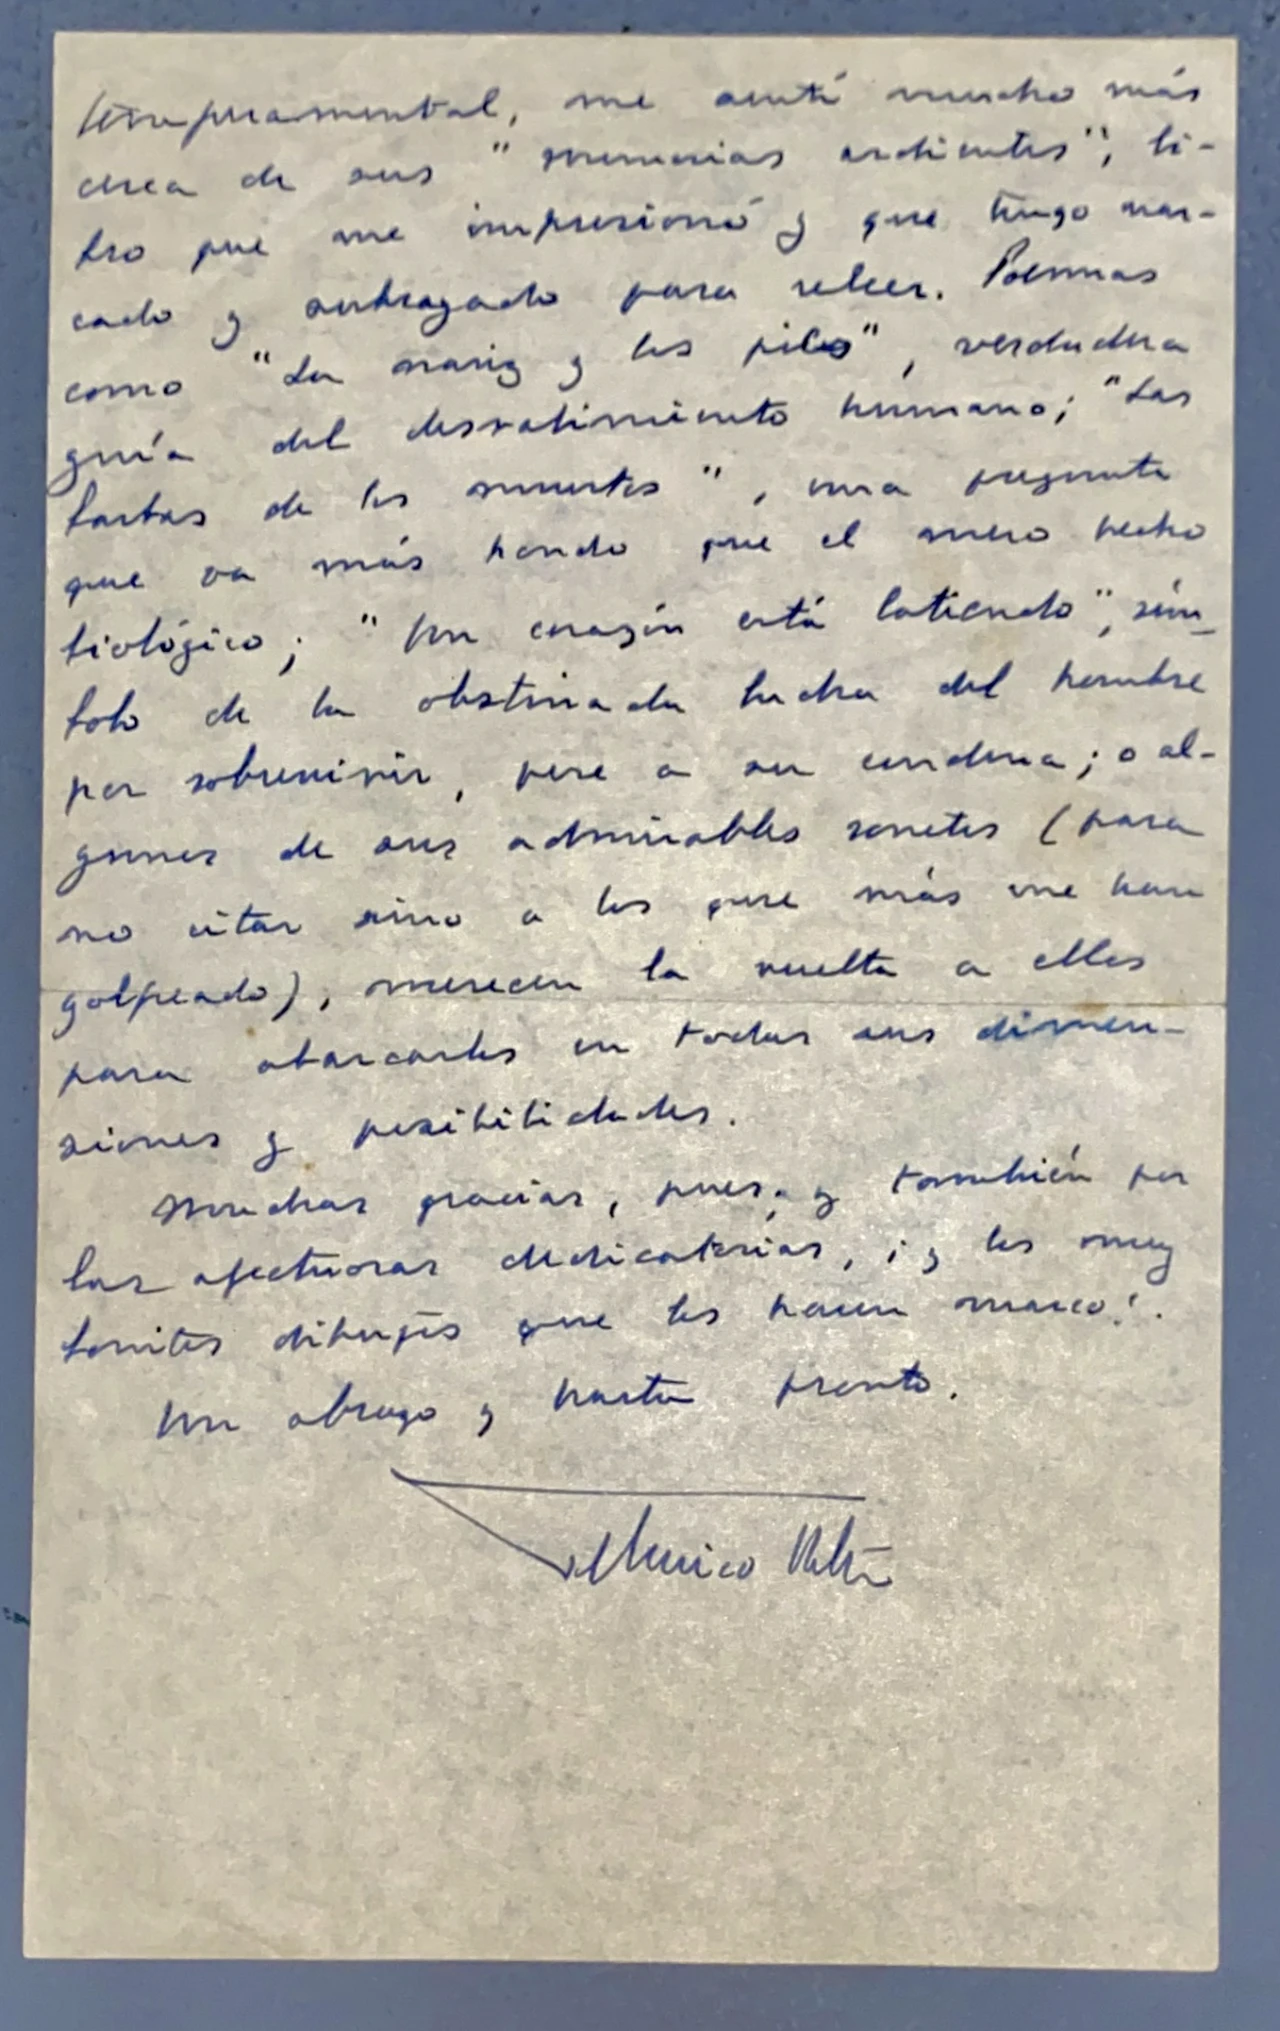 temperamental, me sentí mucho más
cerca de sus "memorias ardientes", li-
bro que me impresionó y que tengo mar-
cado y subrayado para releer. Poemas
como "La nariz y los pies", verdadera
guía del desvalimiento humano; "Las
barbas de los muertos", una pregunta
que va más hondo que el mero hecho
biológico; "Un corazón está latiendo", sím-
bolo de la obstinada lucha del hombre
por sobrevivir, pese a su condena; o al-
gunos de sus admirables sonetos (para
no citar sino a los que más me han
golpeado), merecen la vuelta a ellos
para abarcarlos en todas sus dimen-
siones y posibilidades.
Muchas gracias, pues, y también por
las afectuosas dedicatorias, ¡y los muy
bonitos dibujos que les hacen marco!.
Un abrazo y hasta pronto.
Federico